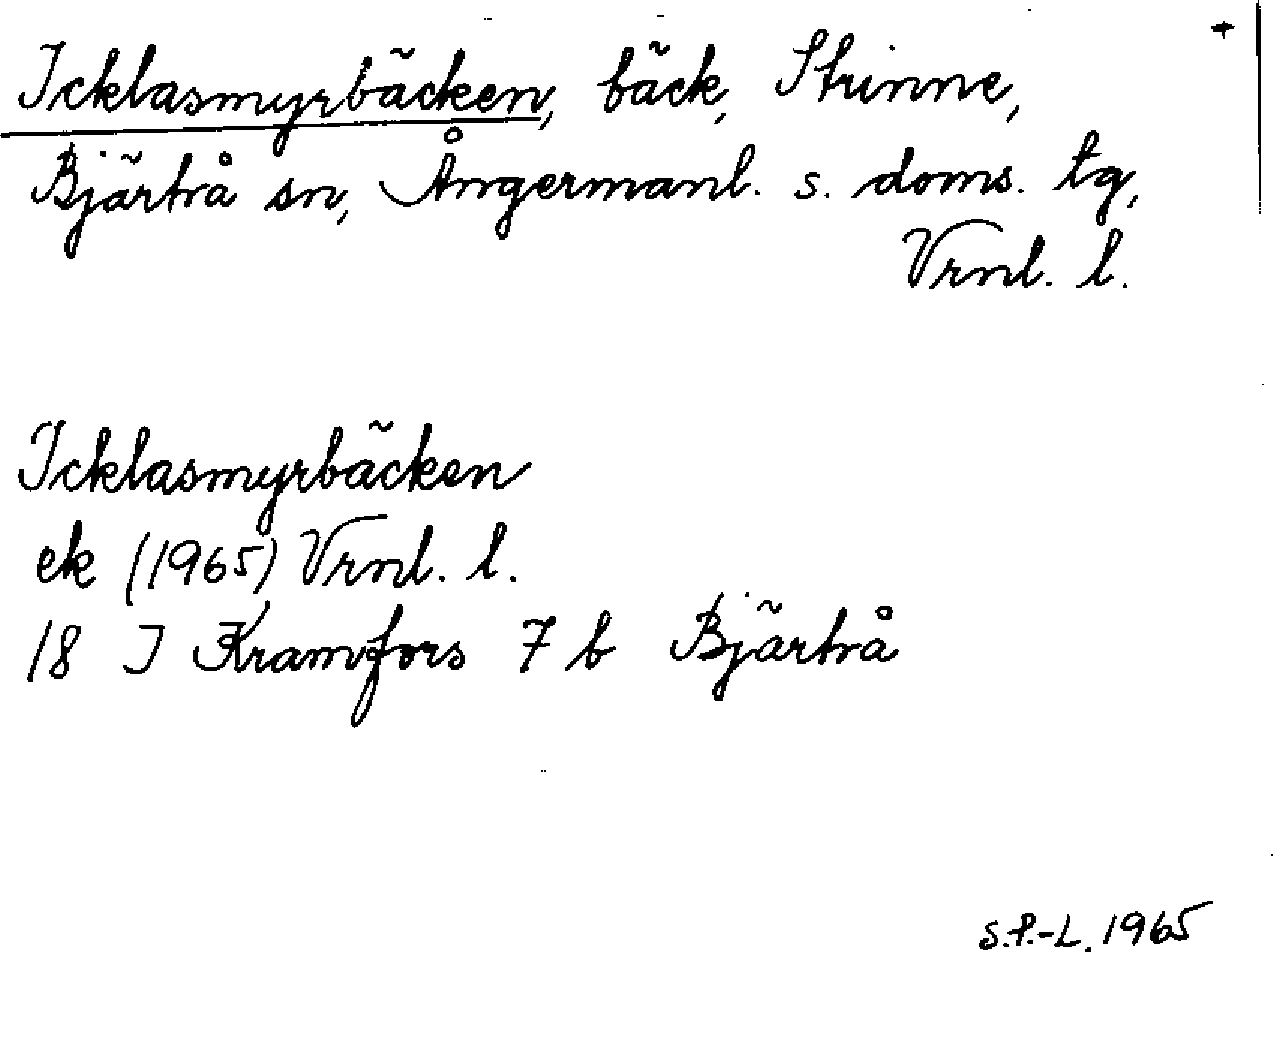 Icklasmyrbäcken, bäck, Strinne,
Bjärtrå sn, Ångermanl. s. doms. tg,
Vrnl. l.
Icklasmyrbäcken
ek (1965) Vrnl. l.
18 I Kramfors 7 b Bjärtrå
S.P.-L. 1965